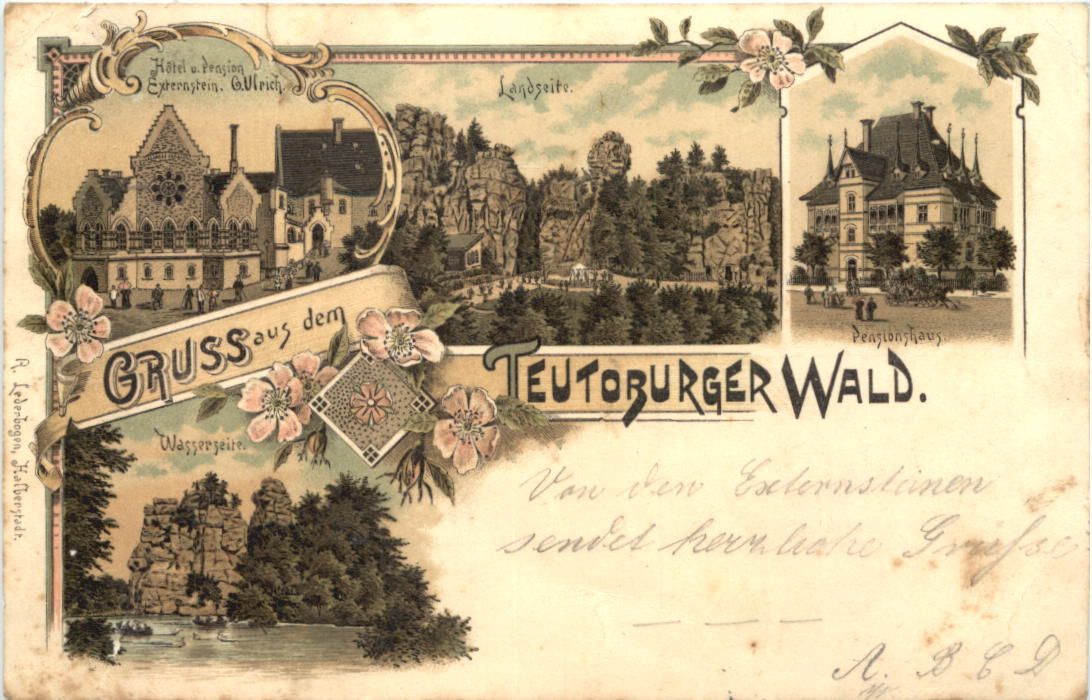 Hôtel u. Pension
Externstein. G. Ulrich.
Landseite.
Pensionshaus.
GRUSS aus dem
TEUTOBURGER WALD.
Wasserseite.
R. Lederbogen, Halberstadt.
Von den Externsteinen
sendet herzliche Grüsse
A. B C D